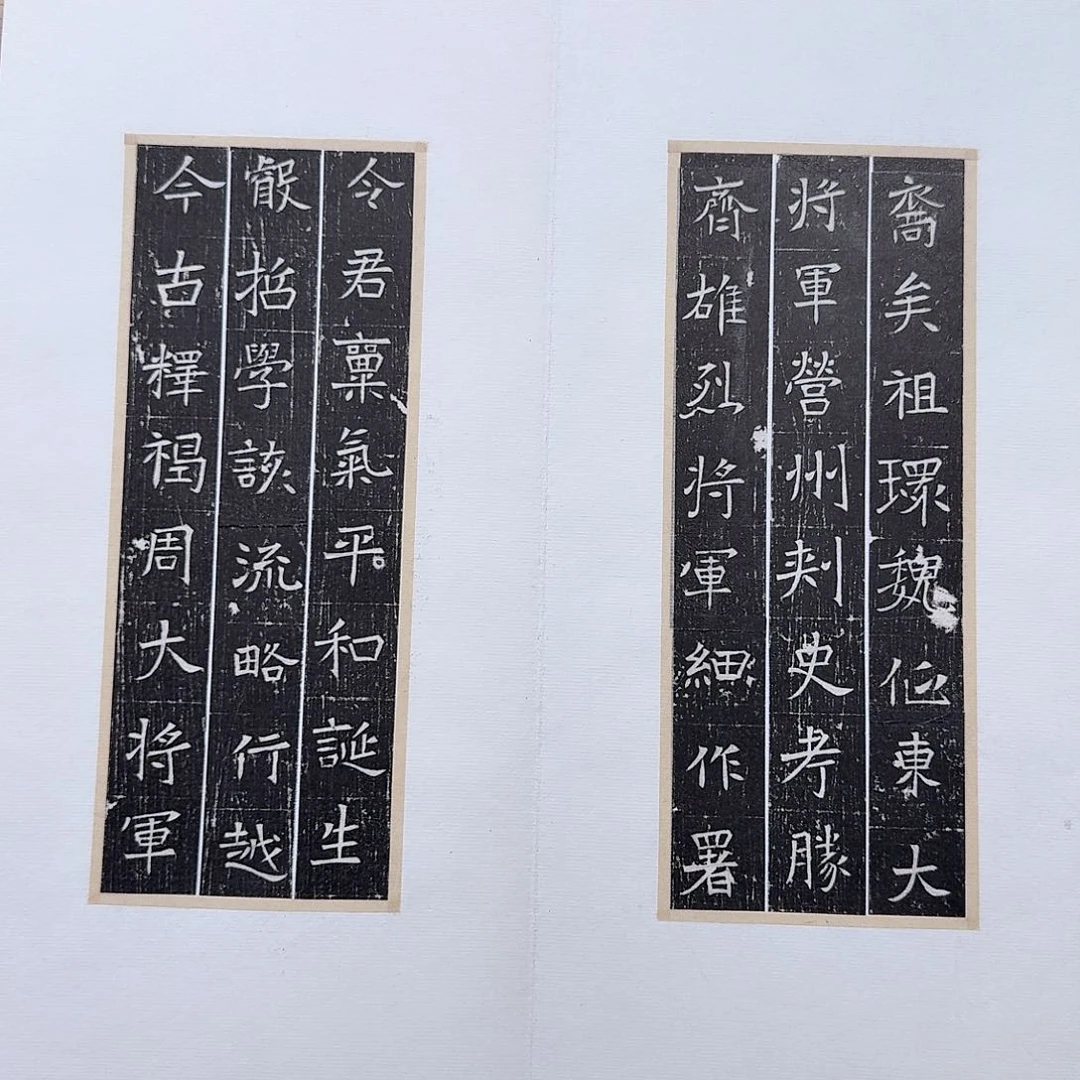 裔矣祖環魏征東大
将軍營州刾史考勝
齊雄烈将軍細作署
令君稟氣平和誕生
叡哲學該流略行越
今古釋褐周大将軍